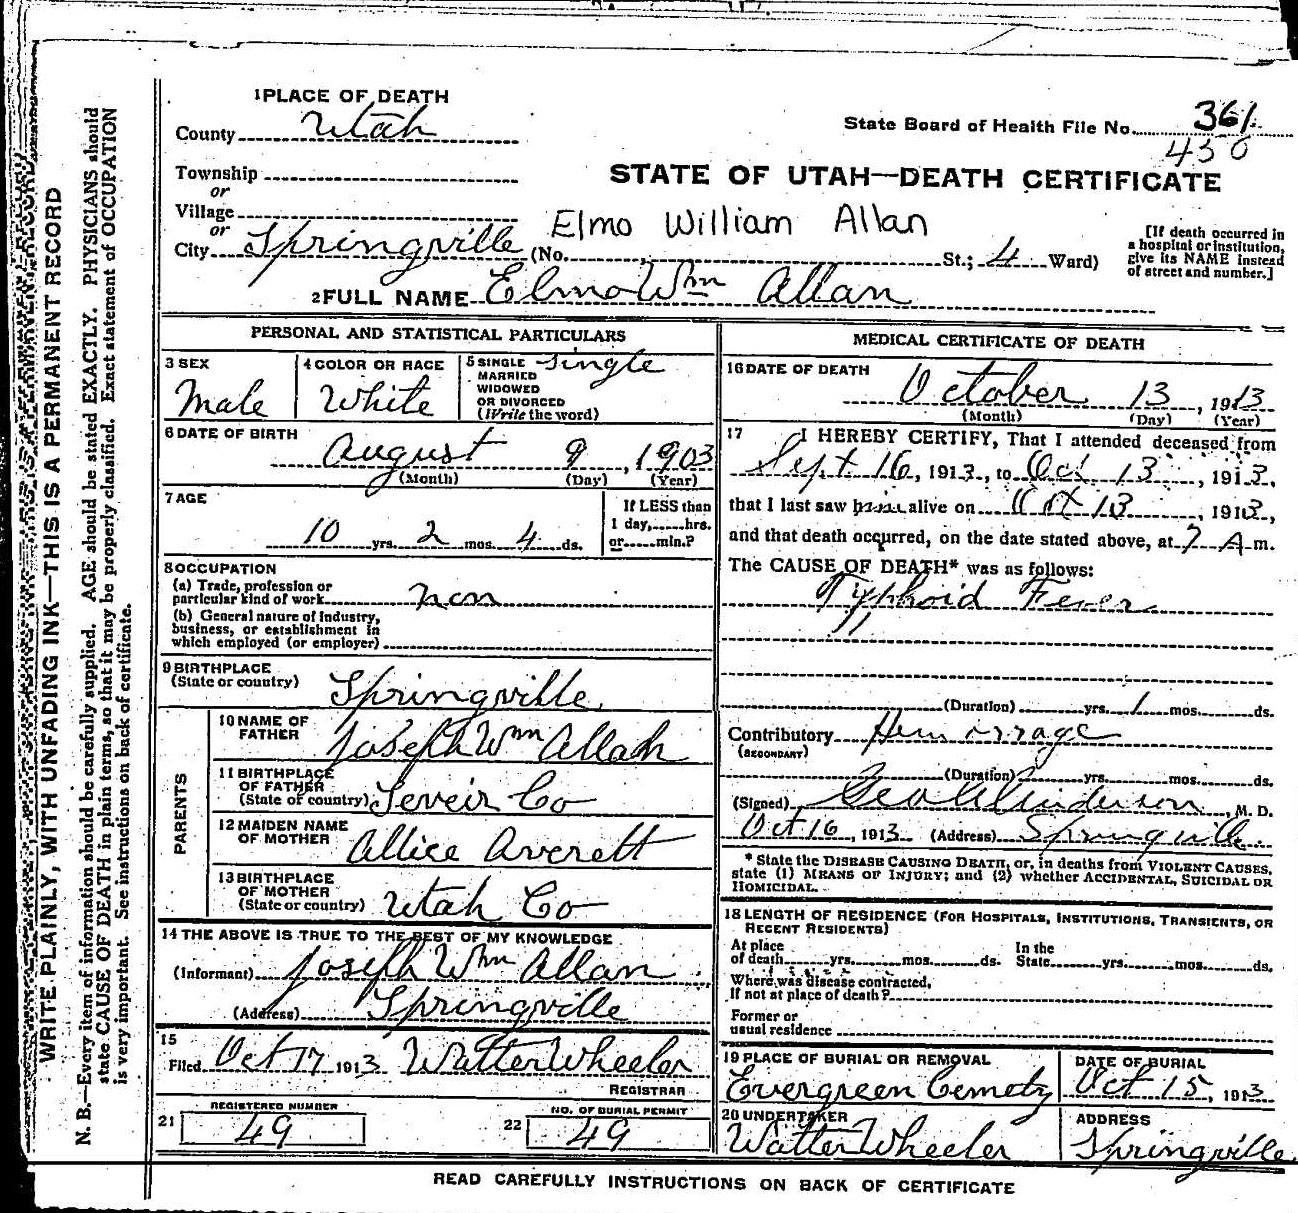 1 PLACE OF DEATH
County Utah
State Board of Health File No. 361
430
Township
or
Village
or
City Springville (No. St.; 4 Ward)
STATE OF UTAH—DEATH CERTIFICATE
Elmo William Allan
[If death occurred in a hospital or institution, give its NAME instead of street and number.]
2 FULL NAME Elmo Wm Allan
PERSONAL AND STATISTICAL PARTICULARS
3 SEX
Male
4 COLOR OR RACE
White
5 SINGLE
MARRIED
WIDOWED
OR DIVORCED
(Write the word)
Single
6 DATE OF BIRTH
August 9, 1903
(Month) (Day) (Year)
7 AGE
10 yrs. 2 mos. 4 ds.
If LESS than
1 day, hrs.
or min.?
8 OCCUPATION
(a) Trade, profession or
particular kind of work non
(b) General nature of industry,
business, or establishment in
which employed (or employer)
9 BIRTHPLACE
(State or country) Springville
PARENTS
10 NAME OF
FATHER Joseph Wm Allan
11 BIRTHPLACE
OF FATHER
(State or country) Seveir Co
12 MAIDEN NAME
OF MOTHER Allice Averett
13 BIRTHPLACE
OF MOTHER
(State or country) Utah Co
14 THE ABOVE IS TRUE TO THE BEST OF MY KNOWLEDGE
(Informant) Joseph Wm Allan
(Address) Springville
15
Filed Oct 17 1913 Walter Wheeler
REGISTRAR
21 REGISTERED NUMBER
49
22 NO. OF BURIAL PERMIT
49
MEDICAL CERTIFICATE OF DEATH
16 DATE OF DEATH
October 13, 1913
(Month) (Day) (Year)
17 I HEREBY CERTIFY, That I attended deceased from
Sept 16, 1913, to Oct 13, 1913,
that I last saw him alive on Oct 13, 1913,
and that death occurred, on the date stated above, at 7 A m.
The CAUSE OF DEATH* was as follows:
Typhoid Fever
(Duration) yrs. 1 mos. ds.
Contributory Hemorrage
(SECONDARY)
(Duration) yrs. mos. ds.
(Signed) Geo Anderson, M. D.
Oct 16, 1913 (Address) Springville
* State the DISEASE CAUSING DEATH, or, in deaths from VIOLENT CAUSES,
state (1) MEANS OF INJURY; and (2) whether ACCIDENTAL, SUICIDAL OR
HOMICIDAL.
18 LENGTH OF RESIDENCE (FOR HOSPITALS, INSTITUTIONS, TRANSIENTS, OR
RECENT RESIDENTS)
At place
of death yrs. mos. ds.
In the
State yrs. mos. ds.
Where was disease contracted,
If not at place of death?
Former or
usual residence
19 PLACE OF BURIAL OR REMOVAL
Evergreen Cemety
DATE OF BURIAL
Oct 15, 1913
20 UNDERTAKER
Walter Wheeler
ADDRESS
Springville
READ CAREFULLY INSTRUCTIONS ON BACK OF CERTIFICATE
WRITE PLAINLY, WITH UNFADING INK—THIS IS A PERMANENT RECORD
N. B.—Every item of information should be carefully supplied. AGE should be stated EXACTLY. PHYSICIANS should
state CAUSE OF DEATH in plain terms, so that it may be properly classified. Exact statement of OCCUPATION
is very important. See instructions on back of certificate.